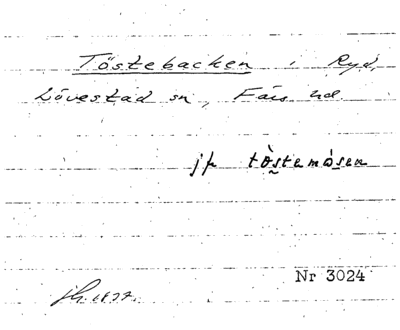 Töstebacken i Ryd,
Lövestad sn, Färs hd.
jfr tòstemósen
Nr 3024
1877.